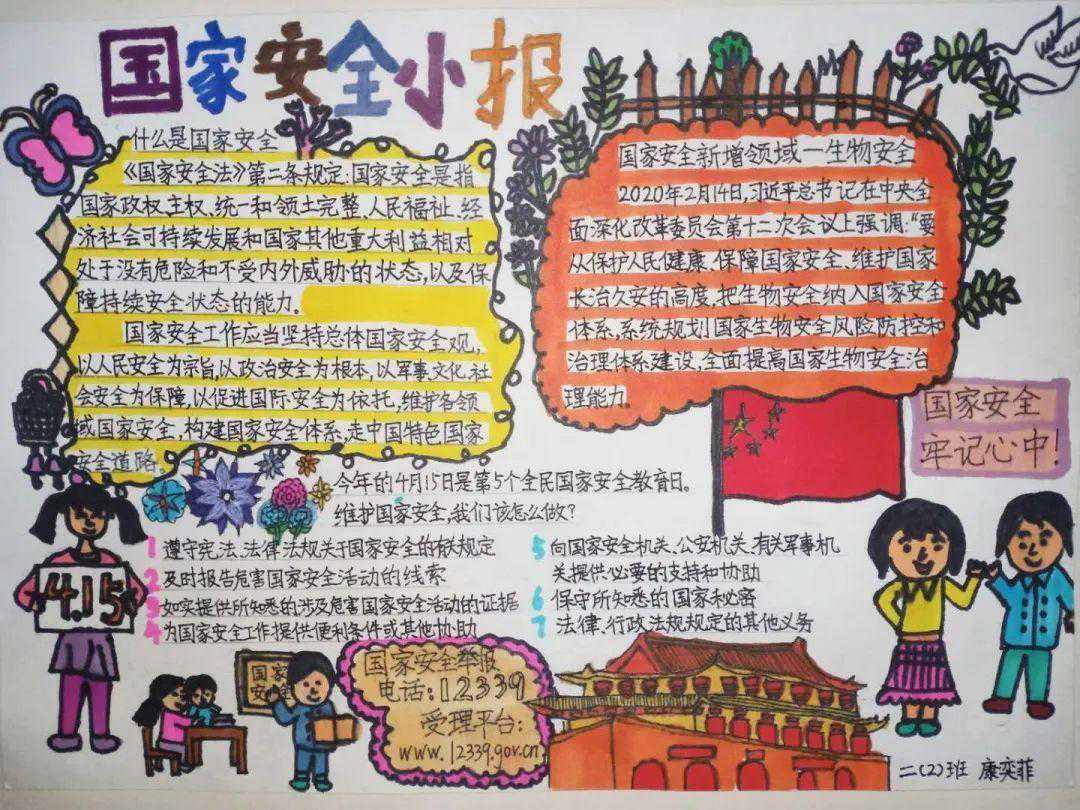 国家安全小报
什么是国家安全
《国家安全法》第二条规定:国家安全是指
国家政权、主权、统一和领土完整、人民福祉、经
济社会可持续发展和国家其他重大利益相对
处于没有危险和不受内外威胁的状态,以及保
障持续安全状态的能力。
国家安全工作应当坚持总体国家安全观,
以人民安全为宗旨,以政治安全为根本,以军事文化、社
会安全为保障,以促进国际安全为依托,维护各领
域国家安全,构建国家安全体系,走中国特色国家
安全道路。
国家安全新增领域—生物安全
2020年2月14日,习近平总书记在中央全
面深化改革委员会第十二次会议上强调:“要
从保护人民健康、保障国家安全、维护国家
长治久安的高度,把生物安全纳入国家安全
体系,系统规划国家生物安全风险防控和
治理体系建设,全面提高国家生物安全治
理能力。
国家安全
牢记心中!
今年的4月15日是第5个全民国家安全教育日。
维护国家安全,我们该怎么做?
1 遵守宪法、法律法规关于国家安全的有关规定
2 及时报告危害国家安全活动的线索
3 如实提供所知悉的涉及危害国家安全活动的证据
4 为国家安全工作提供便利条件或其他协助
5 向国家安全机关、公安机关、有关军事机
关提供必要的支持和协助
6 保守所知悉的国家秘密
7 法律、行政法规规定的其他义务
4.15
国家
安全
国家安全举报
电话:12339
受理平台:
www.12339.gov.cn
二(2)班 康奕菲